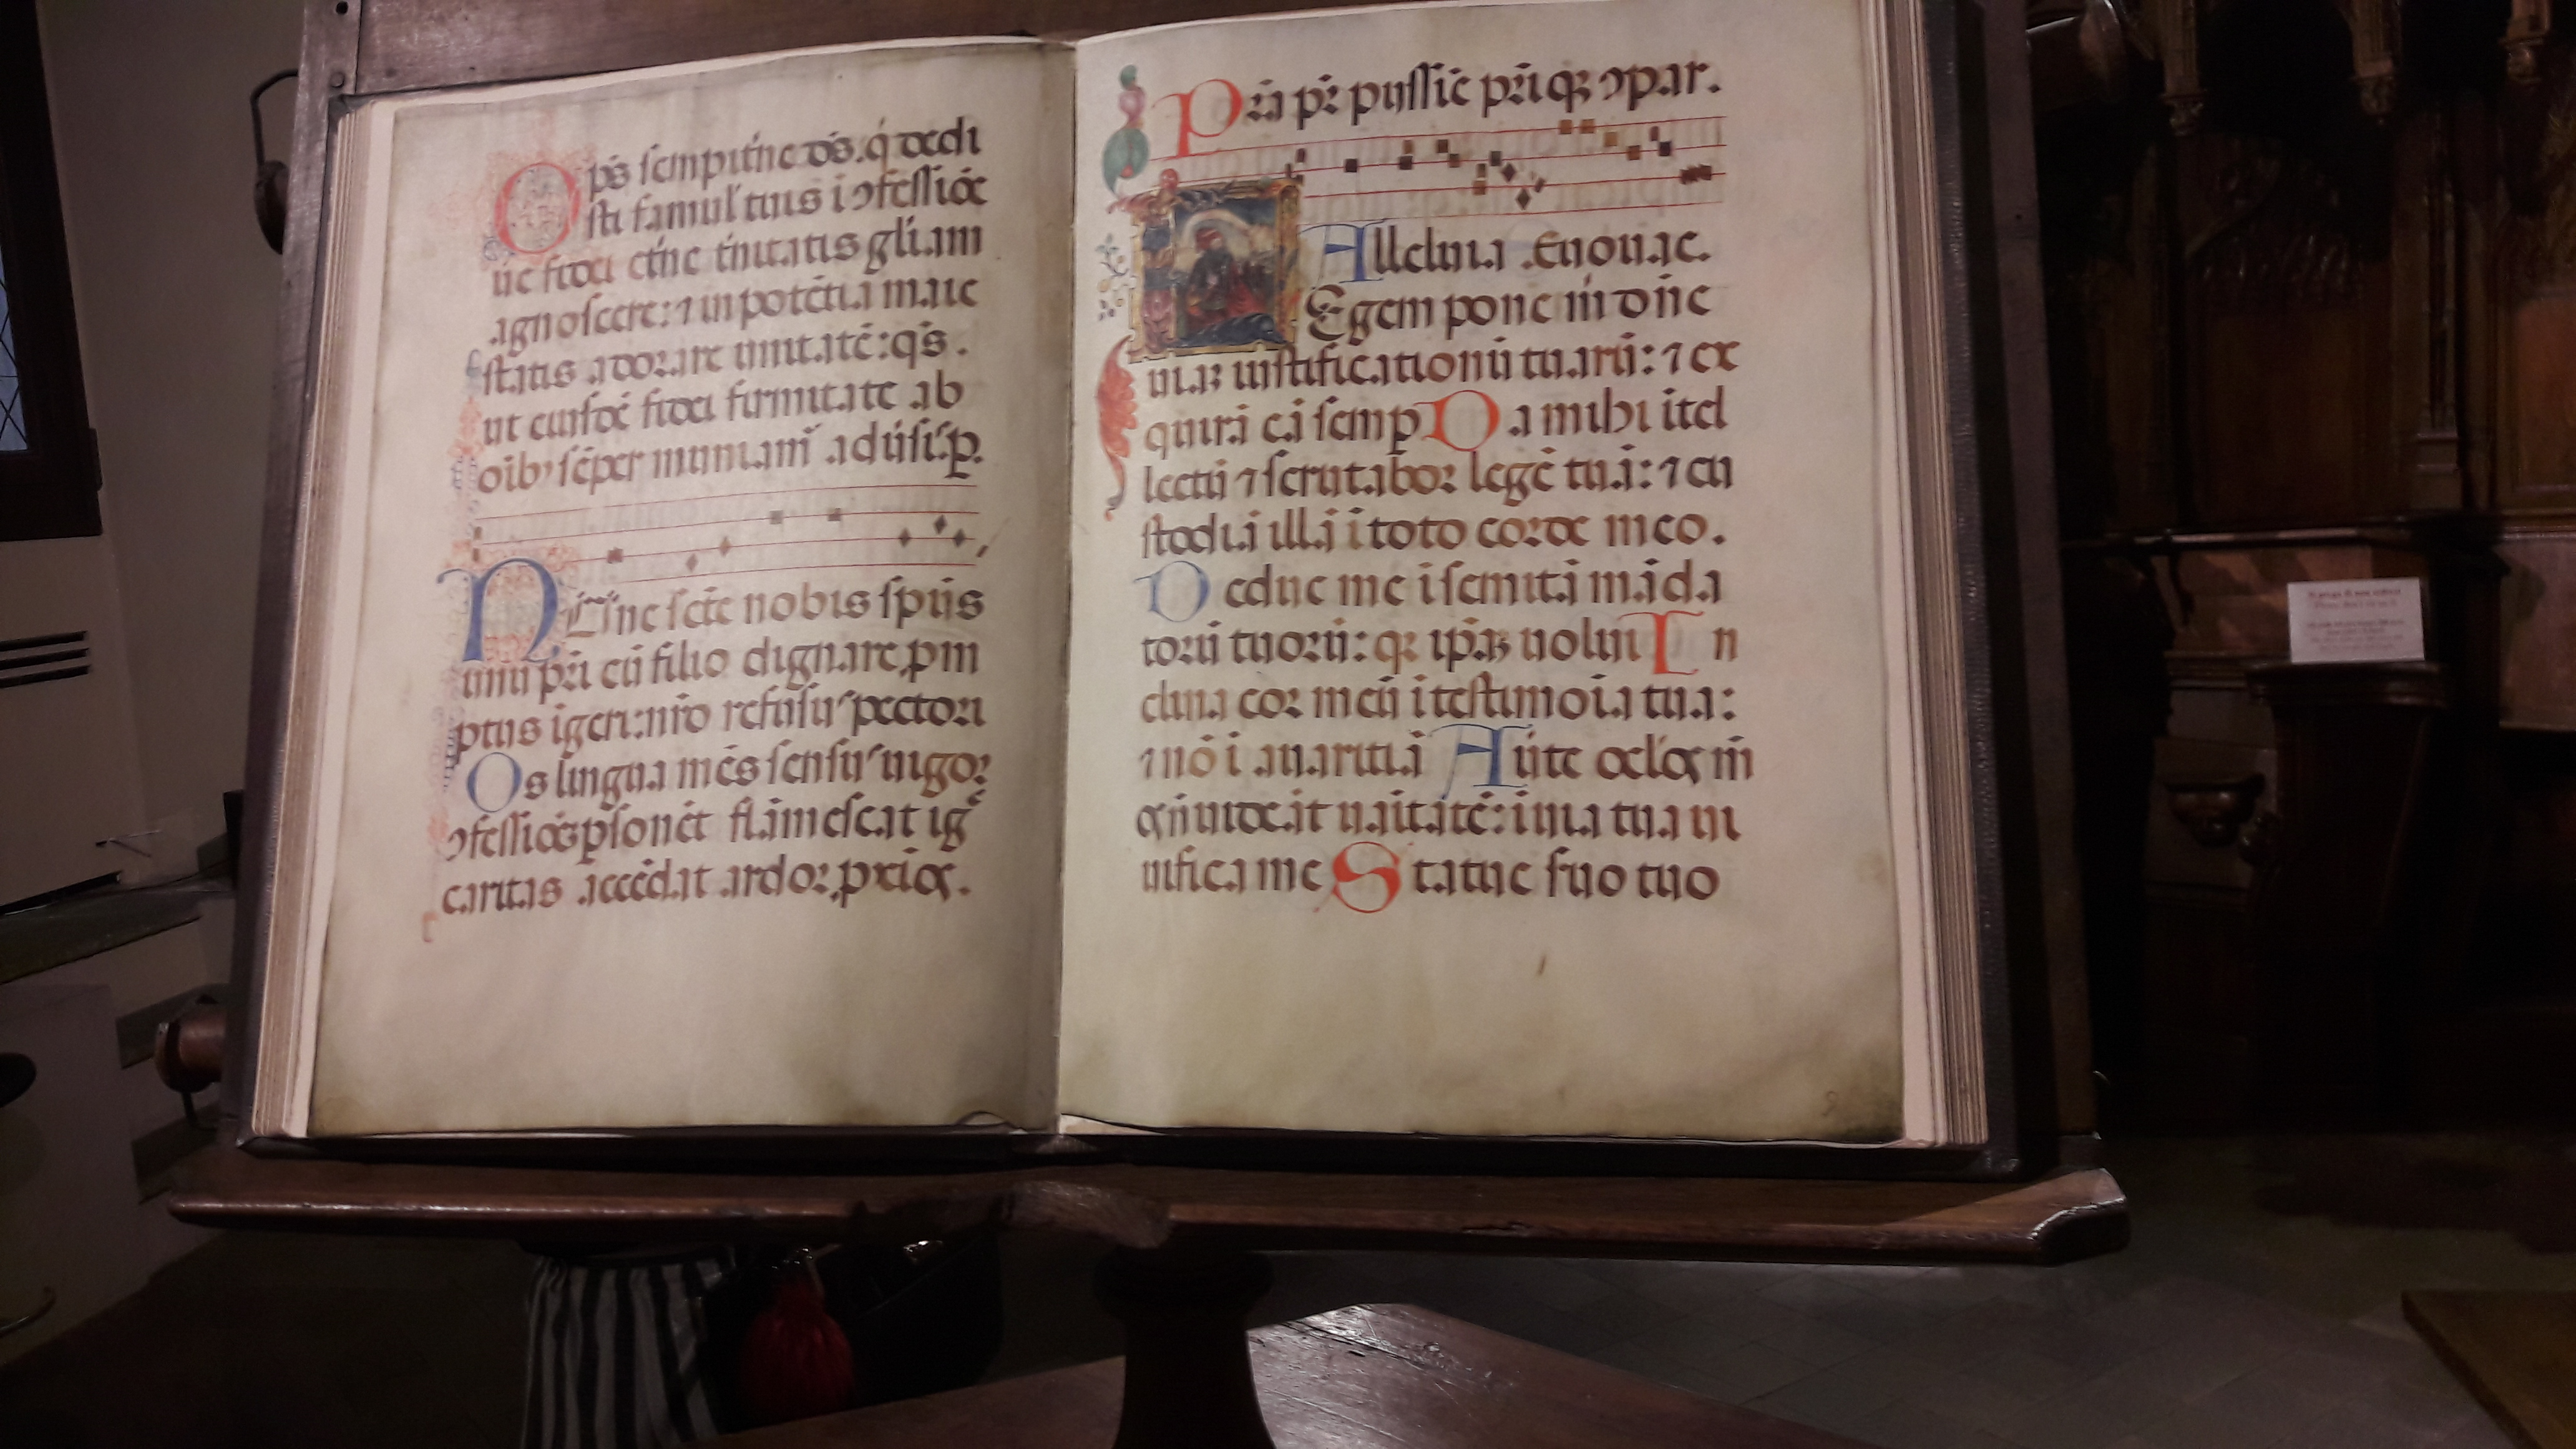 Op̄s sempit̄ne ds̄. q̇ dedi
sti famul' tuis i ꝯfessiōe
ūe fidei et̄ne t̄nitatis gl̄iam
agnoscere: ⁊ in potētia maie
statis adorare unitatē: qs̄.
ut eiusdē fidei firmitate ab
oib' sēper muniam̄ adūsis̄. p.
Nunc scē nobis spūs
unū pr̄i cū filio dignare ꝓm
ptus igeri: nr̄o refusus pectori
Os lingua mēs sensus uigor
ꝯfessiōēꝫ psonēt flāmescat iḡ
caritas accēdat ardor ꝓxiōꝝ.
Pr̄a pr̄ pijssie pr̄iqꝫ ꝯpar.
Alleluia .Euouae.
Legem pone m̄ dn̄e
uiaꝫ iustificationū tuarū: ⁊ ex
quirā eā semp Da mihi itel
lectū ⁊ scrutabor legē tuā: ⁊ cu
stodiā illā i toto corde meo.
Deduc me i semitā māda
torū tuorū: qꝛ ip̄aꝫ uolui In
clina cor meū i testimoia tua:
⁊ nō i auaritiā Auēte oclōꝝ m̄
ꝝ n̄ uideāt uaitatē: i uia tua ui
uifica me Statue s̄uo tuo